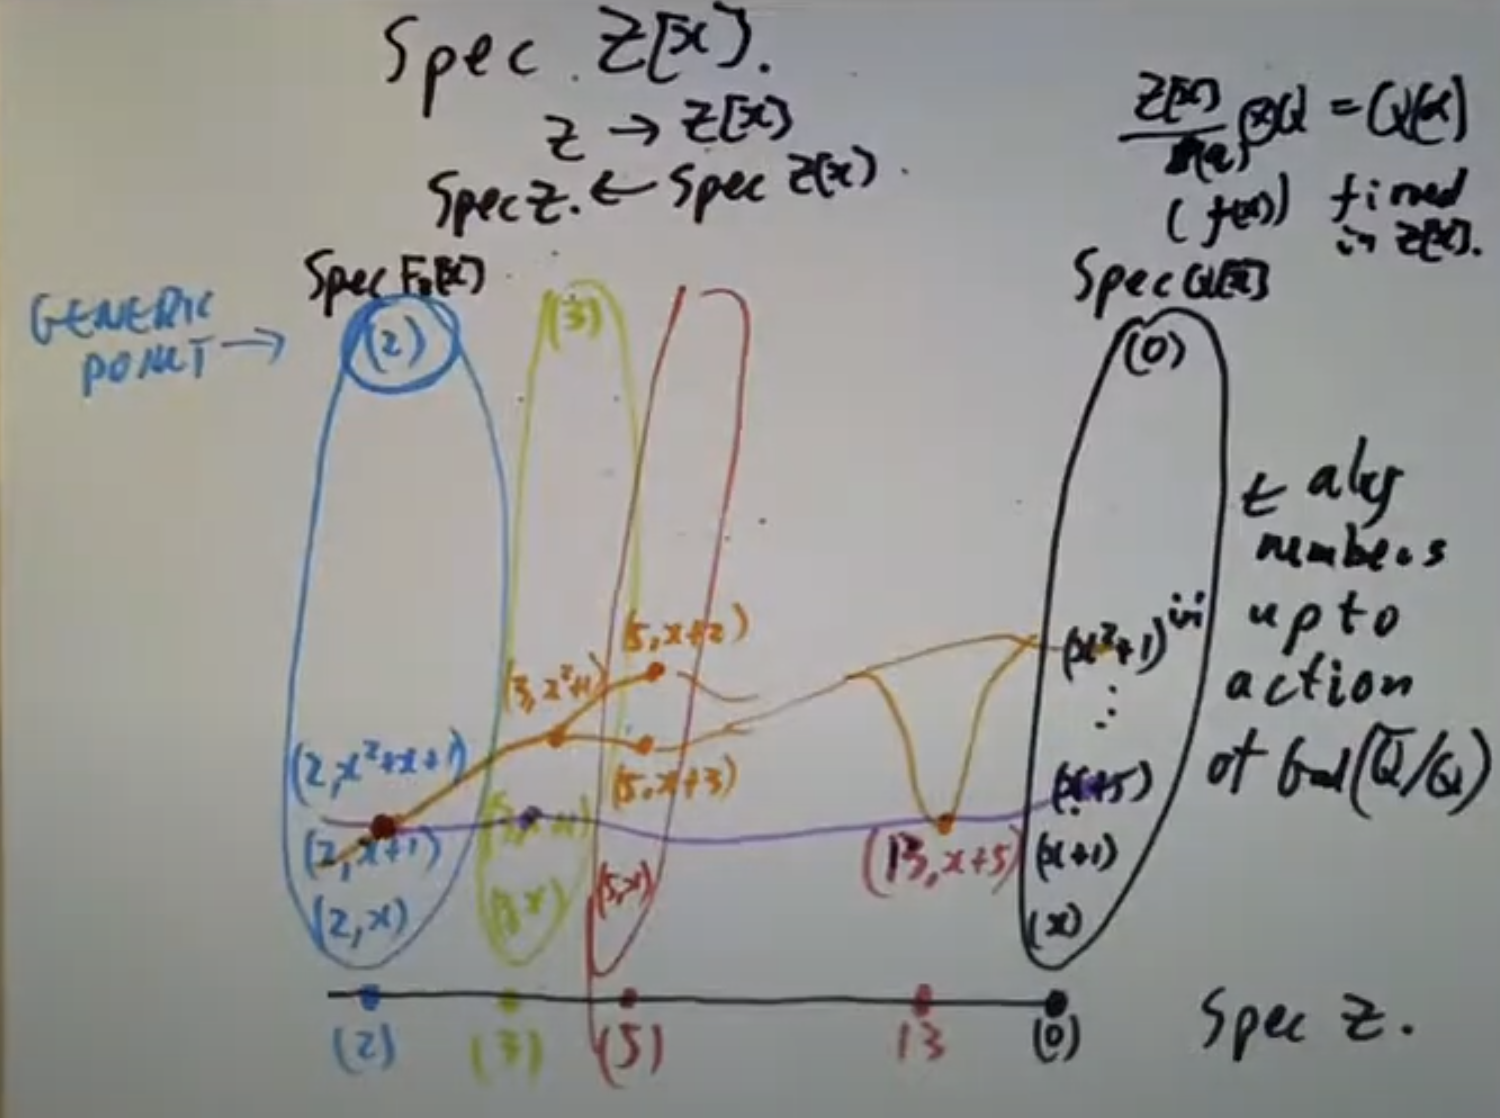 Spec Z[x].
Z → Z[x]
Spec Z. ← Spec Z[x].
Z[x]
⊗Q = Q[x]
(f(x)) f irred
in Z[x].
Spec F₂[x]
Spec Q[x]
GENERIC
POINT →
(2)
(3)
(0)
← alg
numbers
up to
action
of Gal(Q̅/Q)
(x²+1)
(5, x+2)
(3, x²+1)
(2, x²+x+1)
(5, x+3)
(x+5)
(2, x+1)
(13, x+5)
(x+1)
(2, x)
(3, x)
(5, x)
(x)
(2)
(3)
(5)
13
(0)
Spec Z.